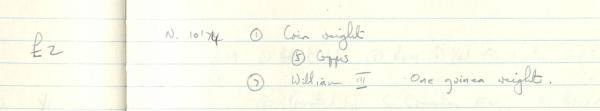 £2
N. 10174 ① Coin weight
③ Copper
② William III One guinea weight.